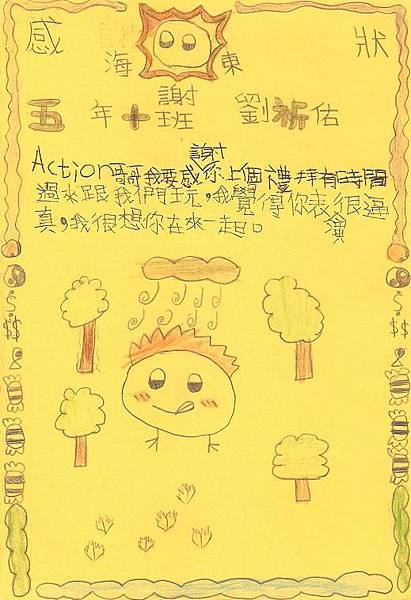 感 狀
海 東
謝
五年十班 劉祈佑
Action哥哥我要感謝你上個禮拜有時間
過來跟我們玩,我覺得你表演很逼
真,我很想你在來一起。
$
$$
$
$$